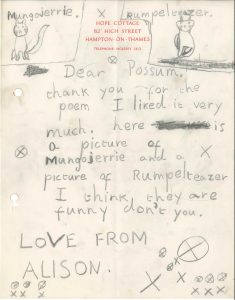 Mungojerrie. X Rumpelteazer.
HOPE COTTAGE
82 HIGH STREET
HAMPTON-ON-THAMES
TELEPHONE MOLESEY
Dear Possum.
thank you for the
poem I liked it very
much. here is
a picture of
Mungojerrie and a
picture of Rumpelteazer
I think they are
funny don't you.
LOVE FROM
ALISON.